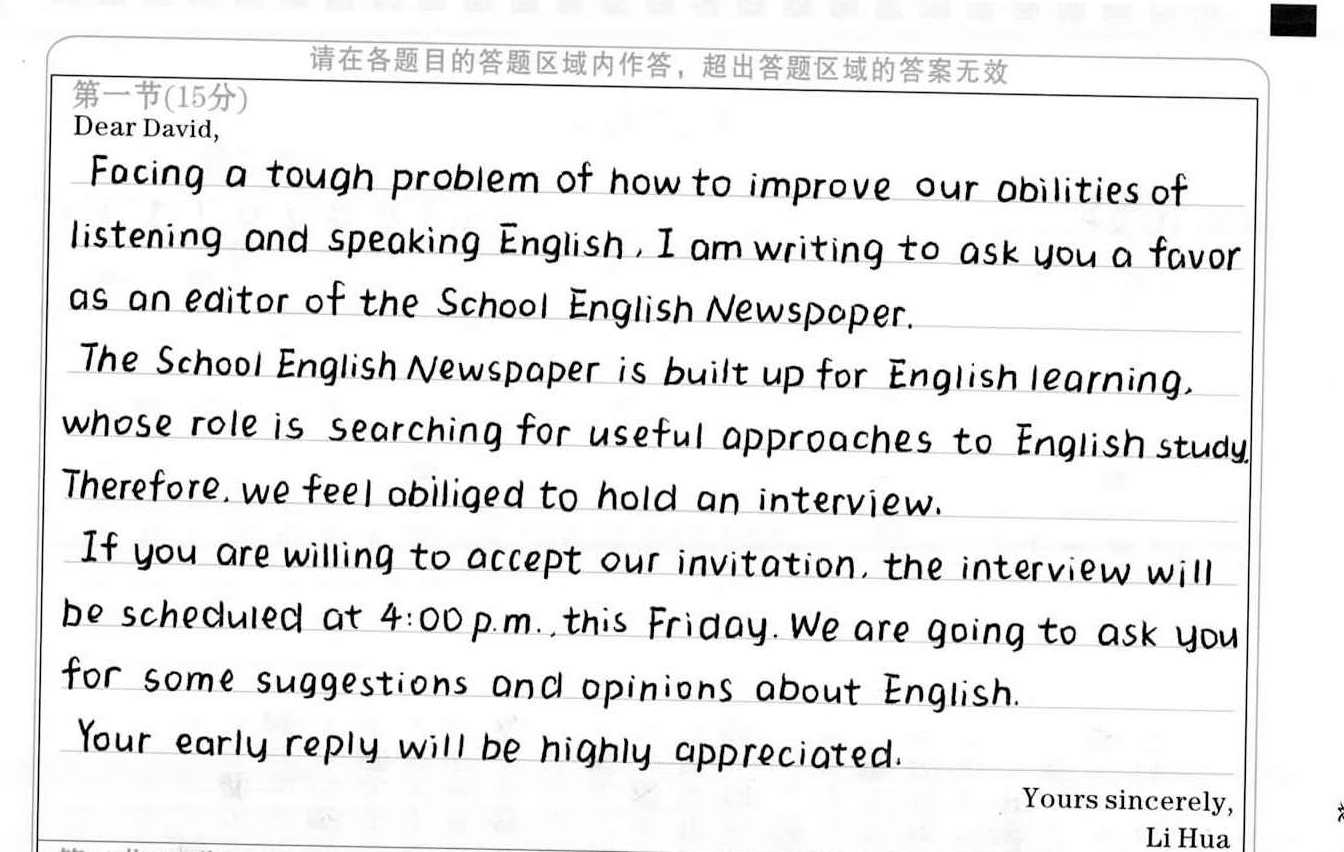 请在各题目的答题区域内作答，超出答题区域的答案无效
第一节(15分)
Dear David,
Facing a tough problem of how to improve our abilities of
listening and speaking English, I am writing to ask you a favor
as an editor of the School English Newspaper.
The School English Newspaper is built up for English learning,
whose role is searching for useful approaches to English study.
Therefore, we feel obiliged to hold an interview.
If you are willing to accept our invitation, the interview will
be scheduled at 4:00 p.m., this Friday. We are going to ask you
for some suggestions and opinions about English.
Your early reply will be highly appreciated.
Yours sincerely,
Li Hua